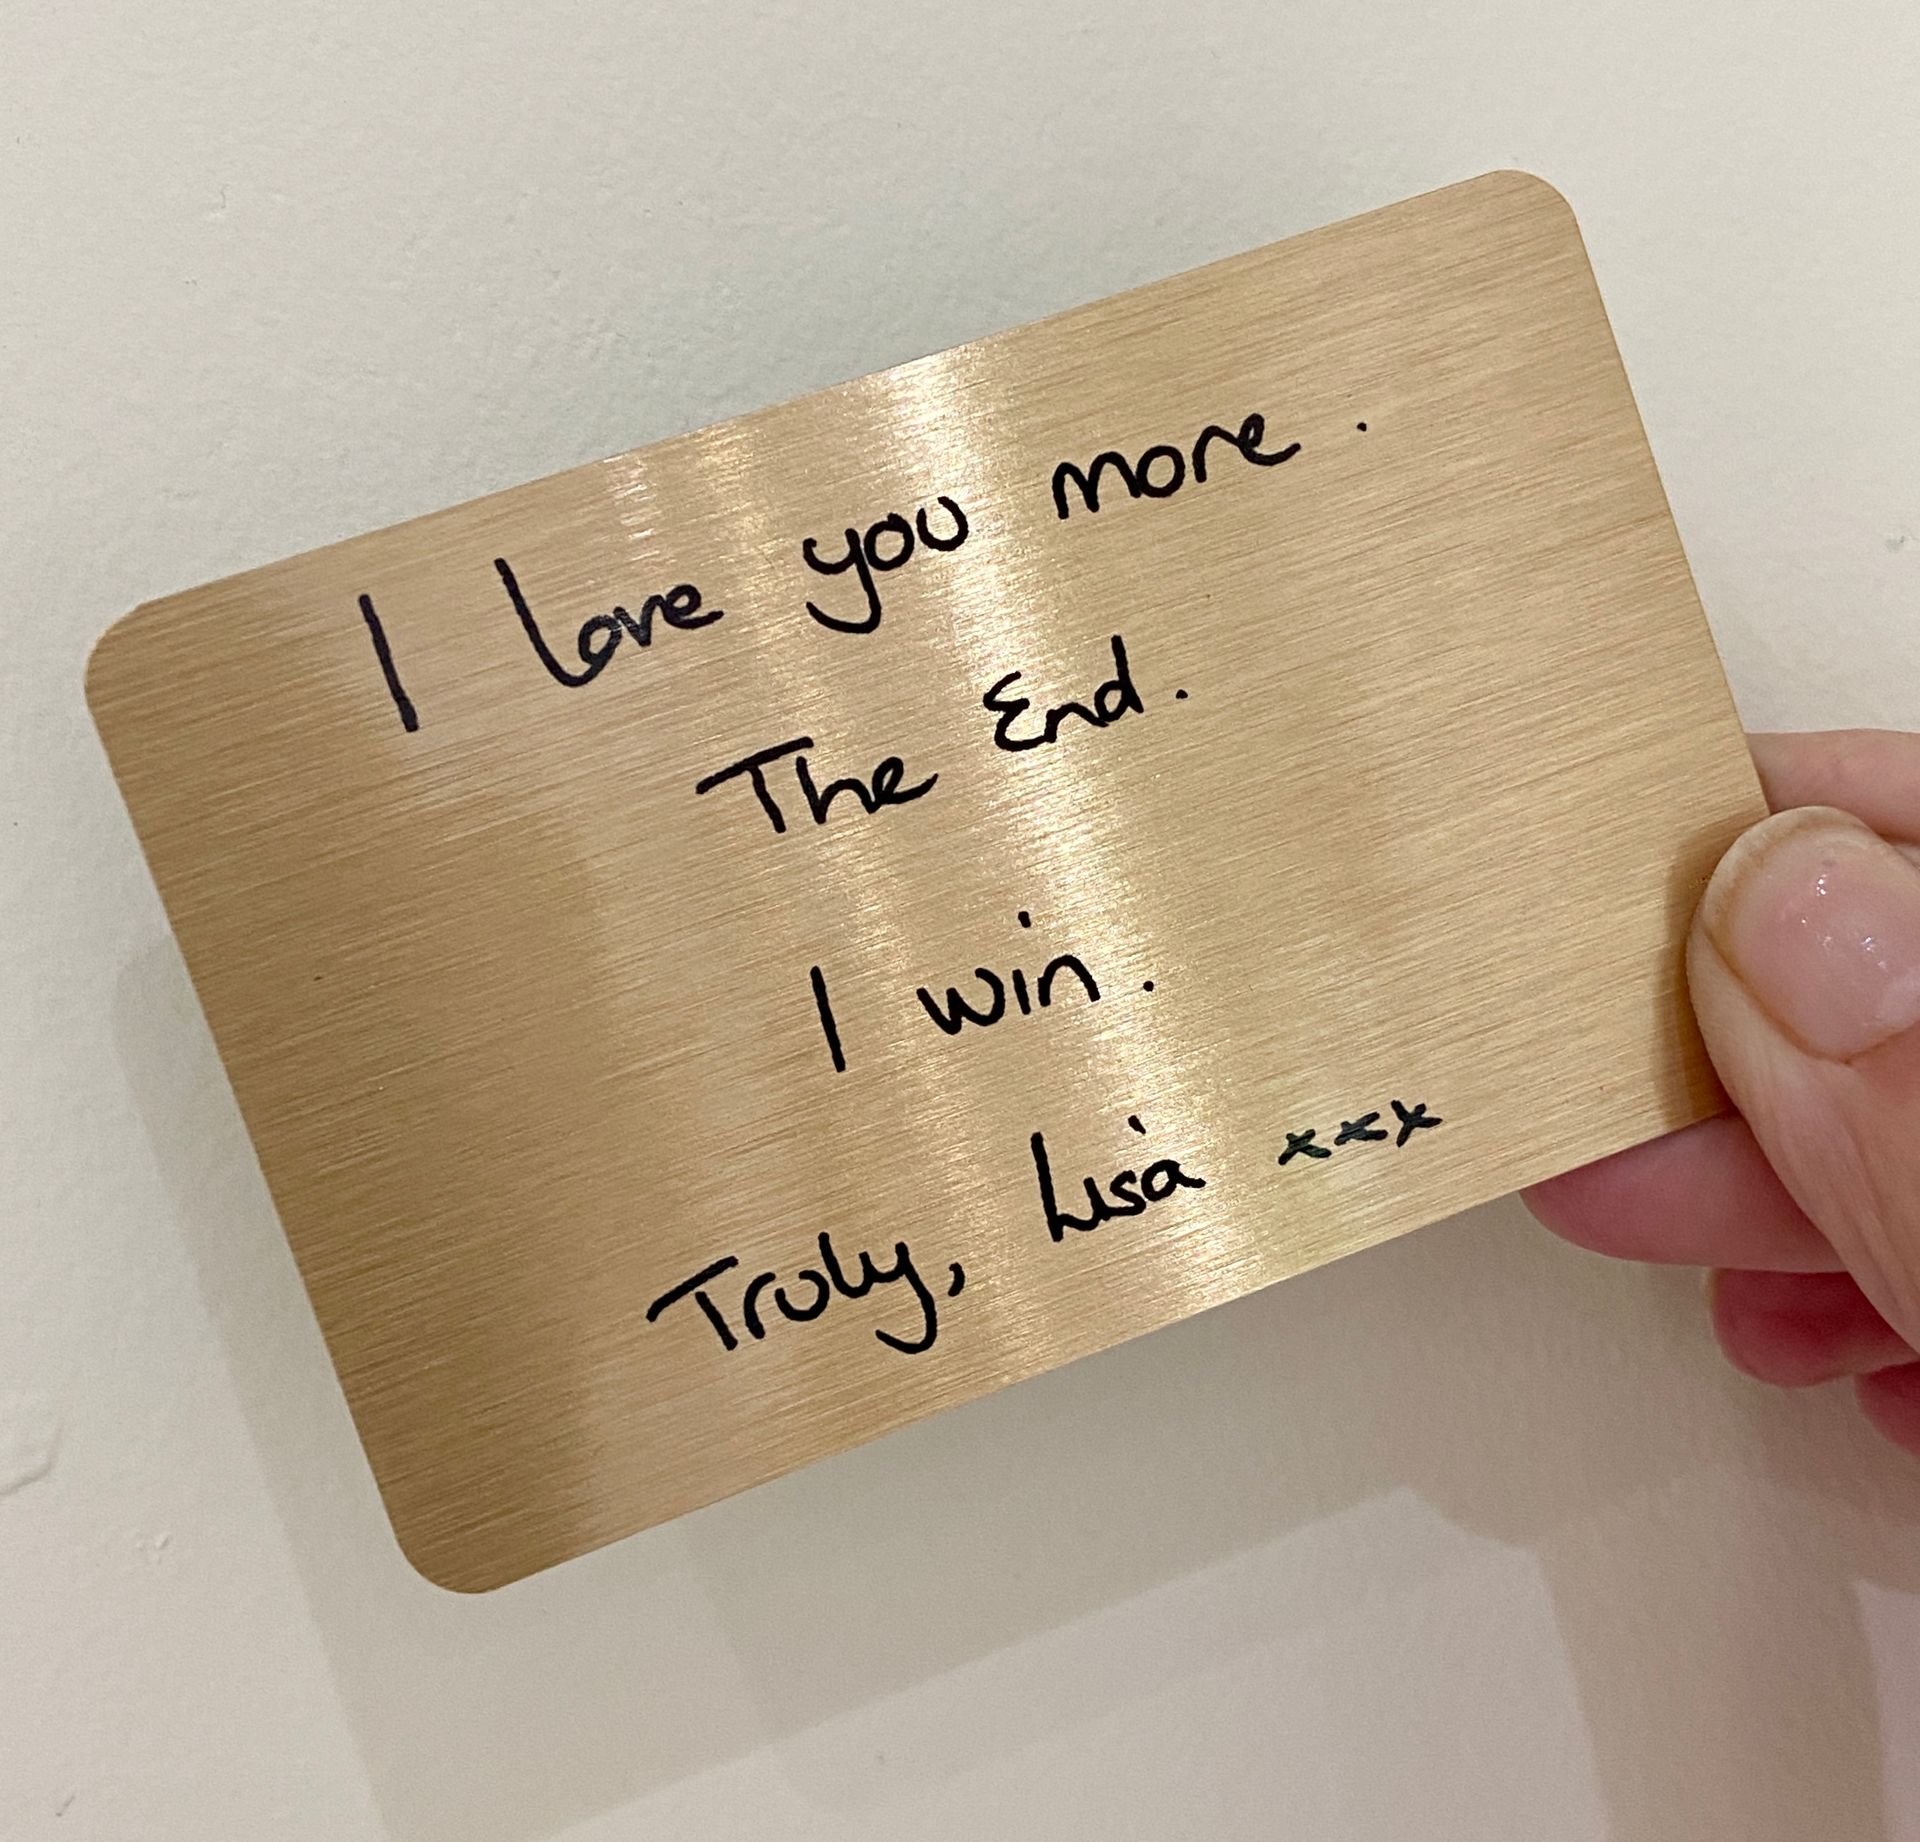 I love you more.
The End.
I win.
Truly, Lisa xxx